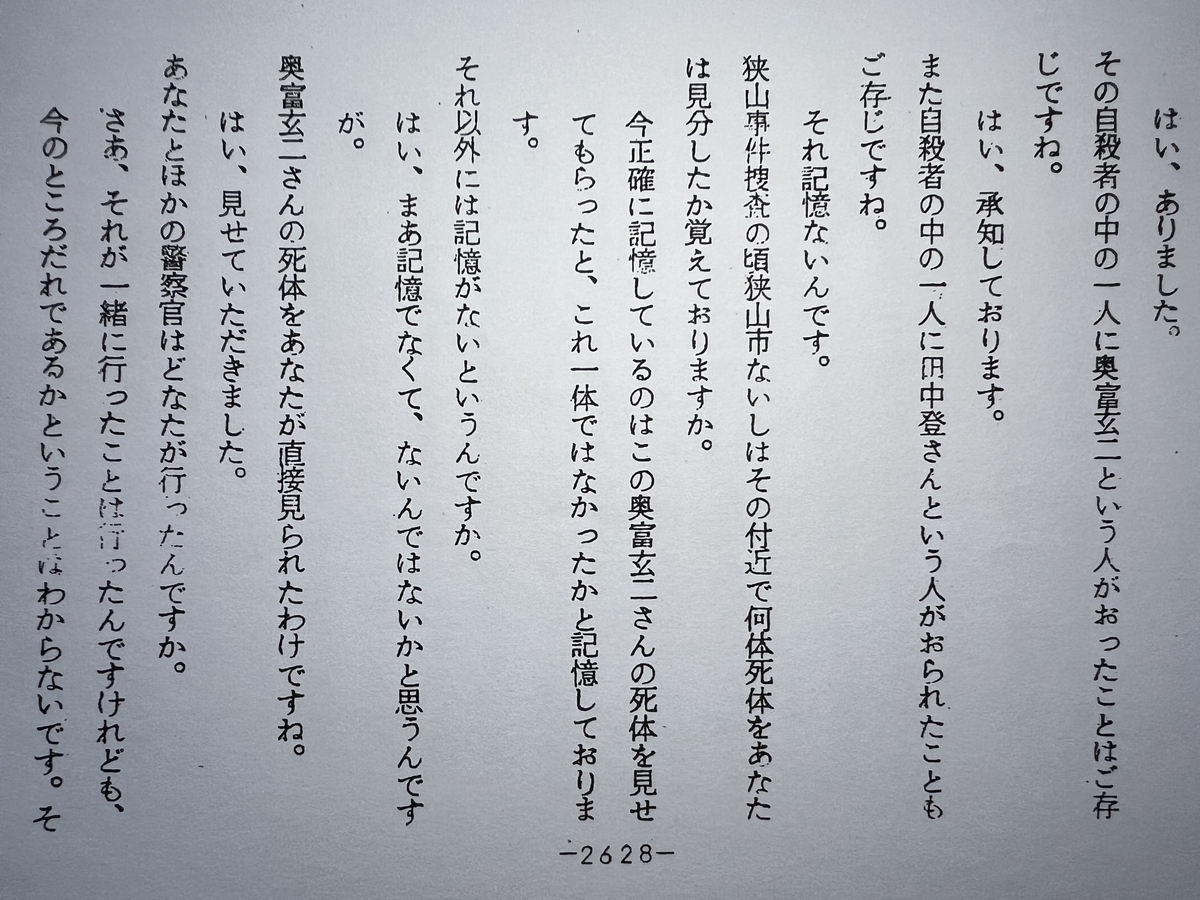 はい、ありました。
その自殺者の中の一人に奥富玄二という人がおったことはご存
じですね。
はい、承知しております。
また自殺者の中の一人に田中登さんという人がおられたことも
ご存じですね。
それ記憶ないんです。
狭山事件捜査の頃狭山市ないしはその付近で何体死体をあなた
は見分したか覚えておりますか。
今正確に記憶しているのはこの奥富玄二さんの死体を見せ
てもらったと、これ一体ではなかったかと記憶しておりま
す。
それ以外には記憶がないというんですか。
はい、まあ記憶でなくて、ないんではないかと思うんです
が。
奥富玄二さんの死体をあなたが直接見られたわけですね。
はい、見せていただきました。
あなたとほかの警察官はどなたが行ったんですか。
さあ、それが一緒に行ったことは行ったんですけれども、
今のところだれであるかということはわからないです。そ
－2628－